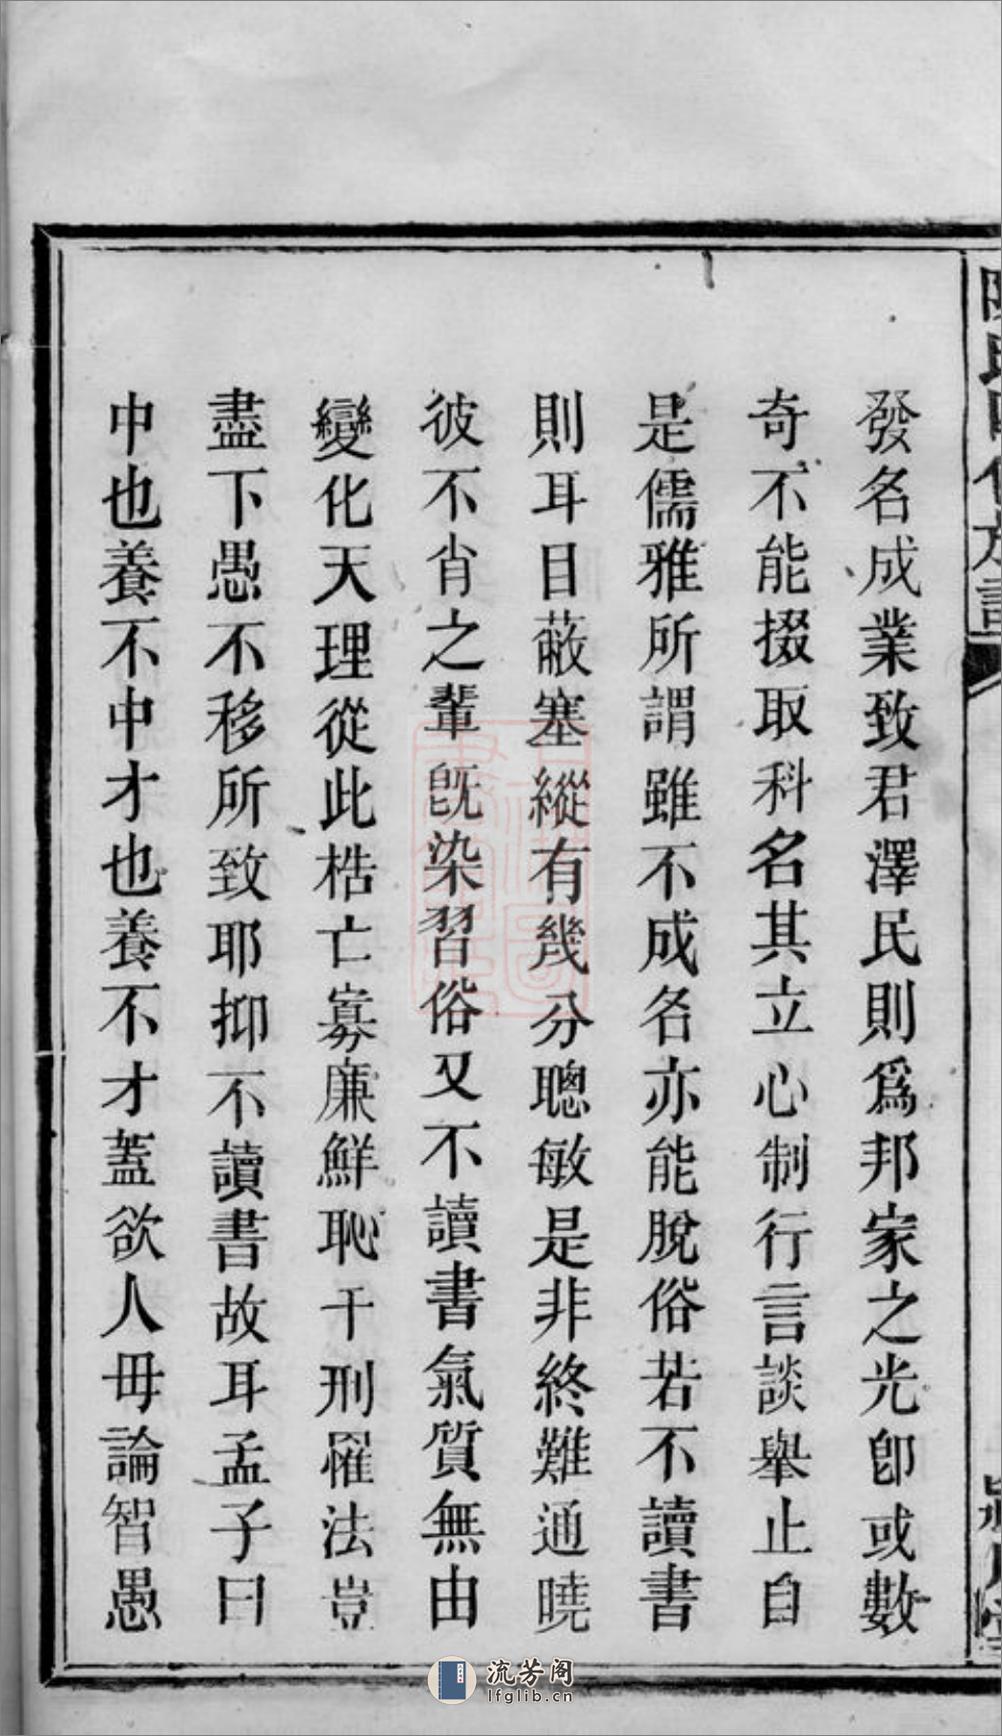 發名成業致君澤民則爲邦家之光卽或數
奇不能掇取科名其立心制行言談舉止自
是儒雅所謂雖不成名亦能脫俗若不讀書
則耳目蔽塞縱有幾分聰敏是非終難通曉
彼不肖之輩旣染習俗又不讀書氣質無由
變化天理從此梏亡寡廉鮮恥干刑罹法豈
盡下愚不移所致耶抑不讀書故耳孟子曰
中也養不中才也養不才蓋欲人毋論智愚
流芳阁
lfglib.cn